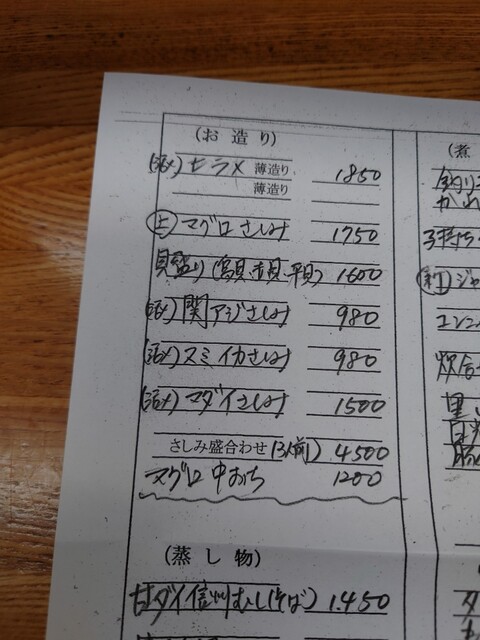 (お造り)
(活〆)ヒラメ 薄造り 1850
薄造り
㊤マグロさしみ 1750
貝盛り(鳥貝・赤貝・平貝) 1600
(活〆)関アジさしみ 980
(活〆)スミイカさしみ 980
(活〆)マダイさしみ 1500
さしみ盛合わせ(3人前) 4500
マグロ中おち 1200
(蒸し物)
甘ダイ信州むし(そば) 1.450
(煮
子持ち